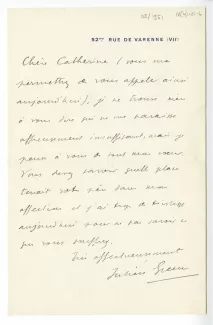 52bis RUE DE VARENNE (VII)
Chère Catherine (vous me
permettez de vous appeler ainsi
aujourd'hui), je ne trouve rien
à vous dire qui ne me paraisse
affreusement insuffisant, mais je
pense à vous de tout mon cœur.
Vous devez savoir quelle place
tenait votre père dans mon
affection et j'ai
aujourd'hui vous
que vous souffrez.
Très affectueusement
Julien Green